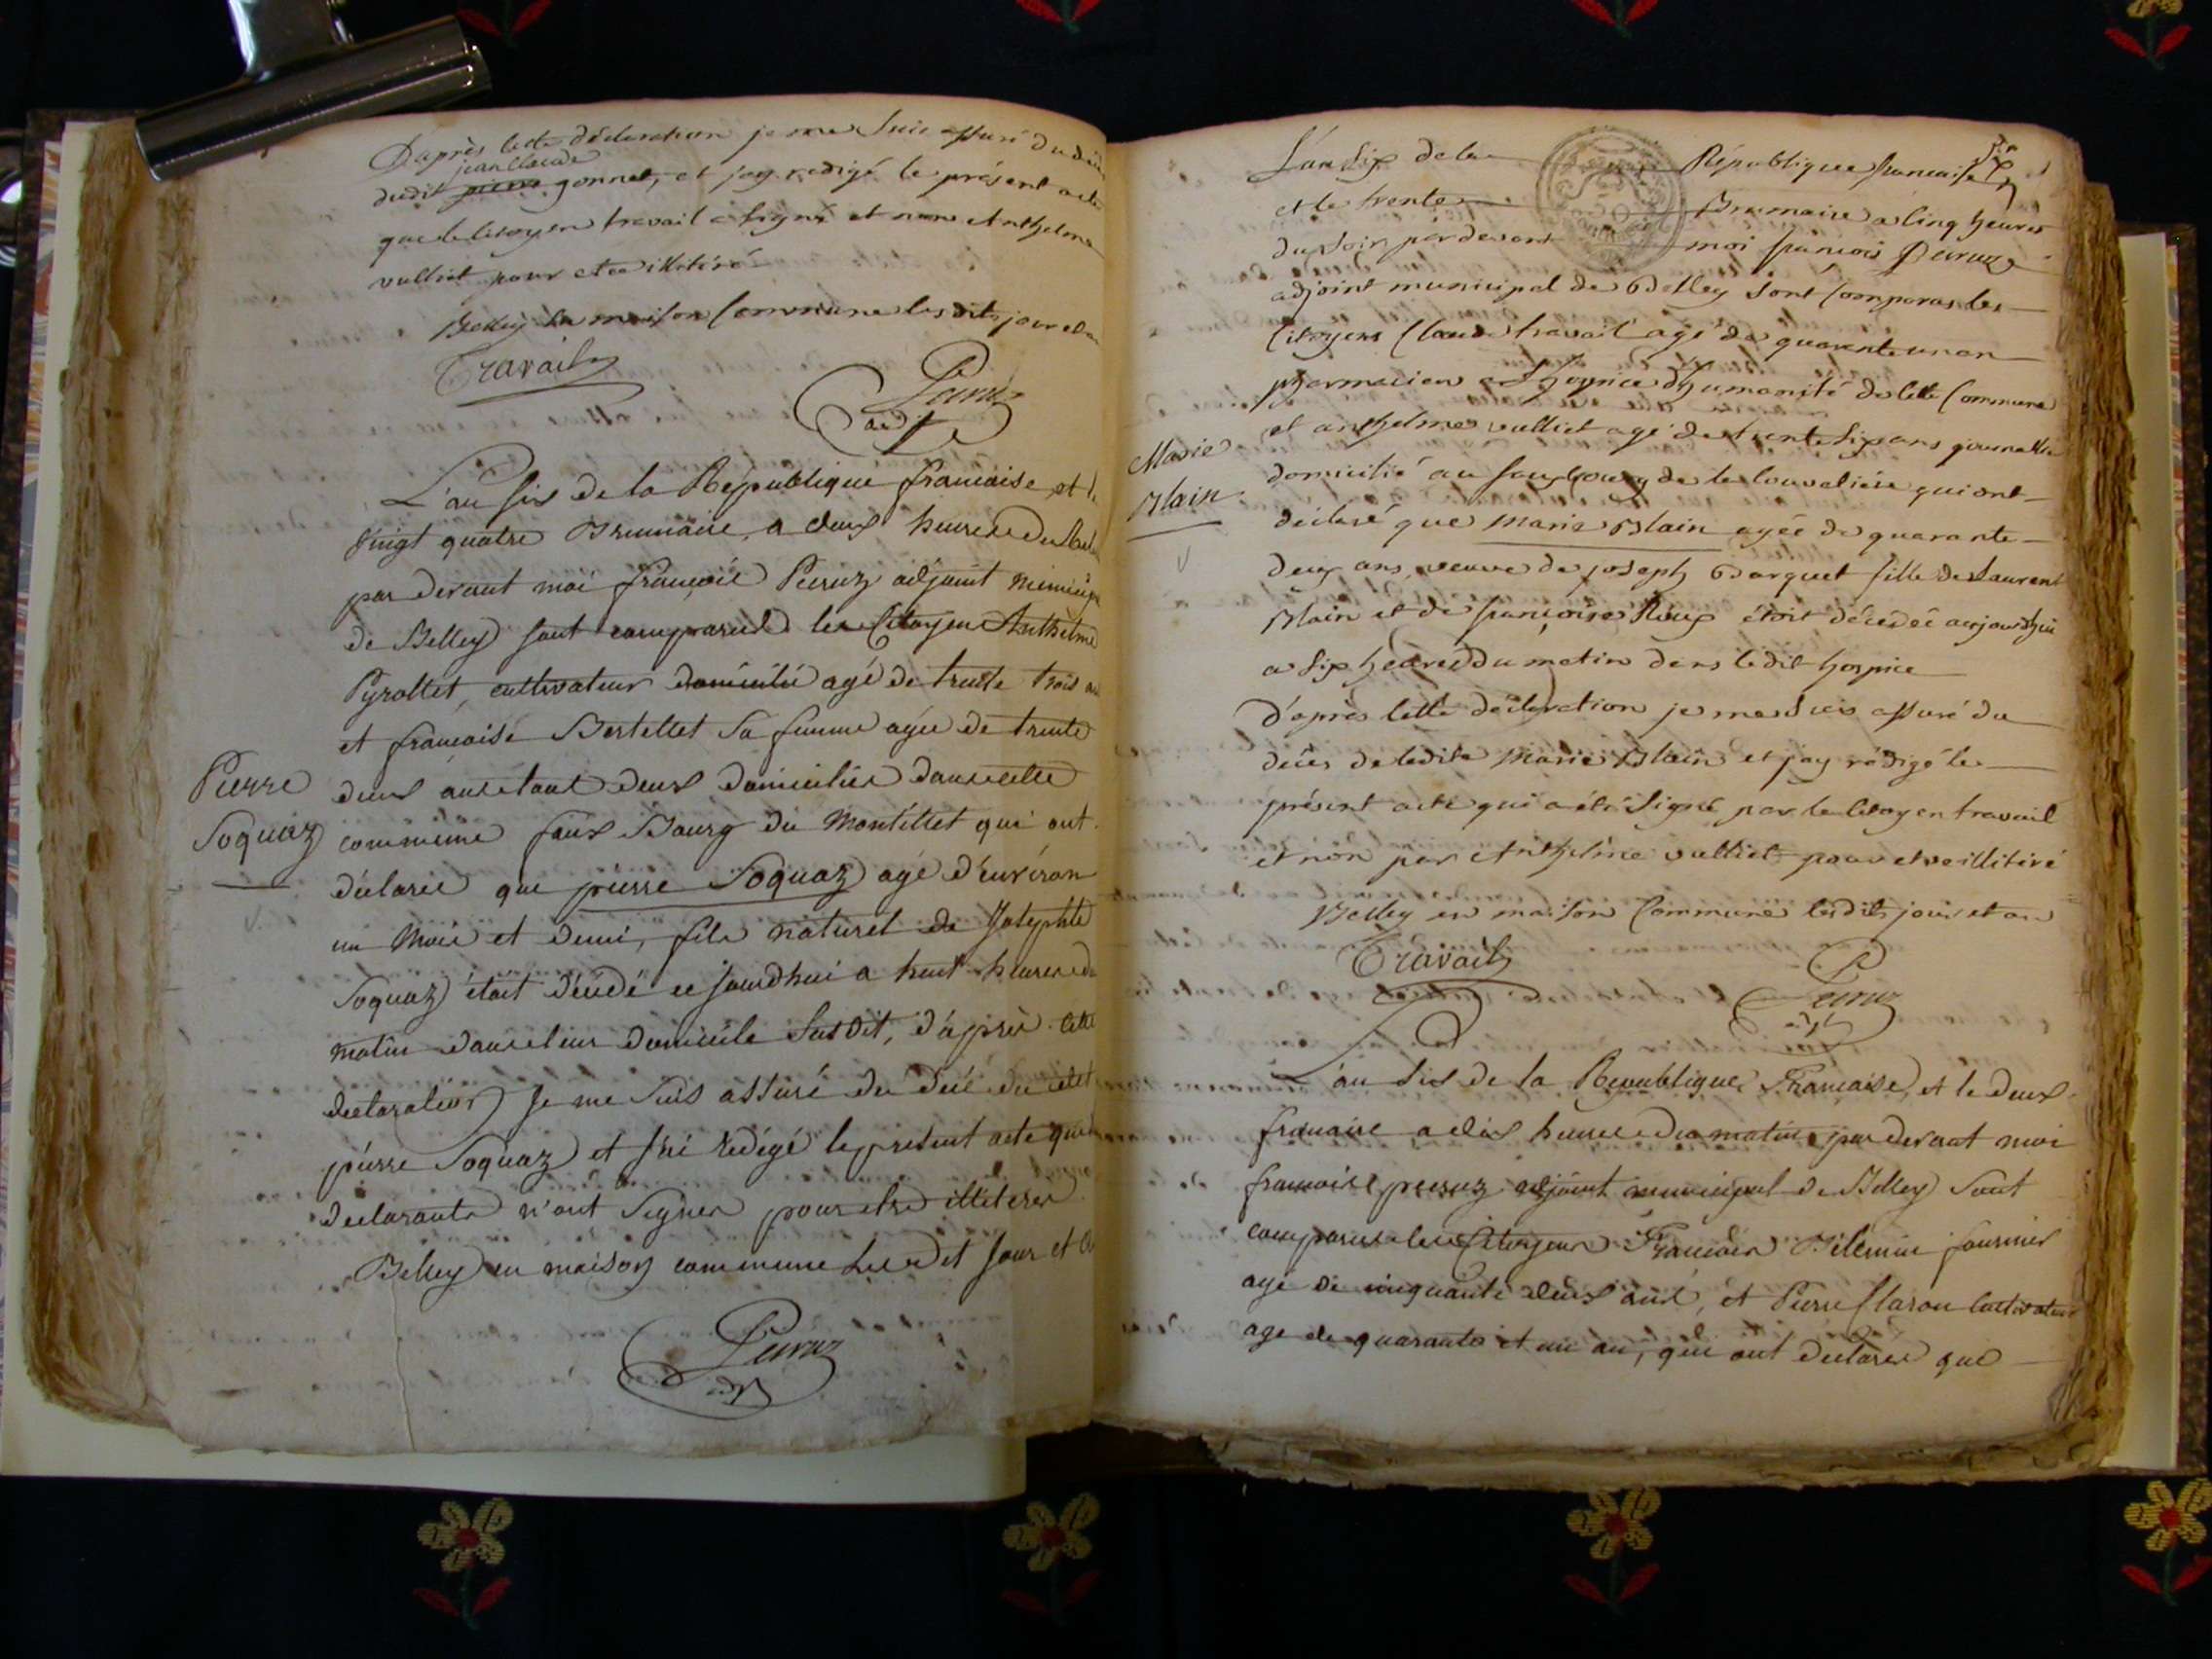 D'après cette déclaration je me suis assuré du décè
jean claude
dudit pierre gonnet, et jay redigé le présent acte
que le citoyen travail a signé et non Anthelme
vulliet pour etre illitéré
Belley en maison Commune lesdits jour et an
Travail
Peiruz
adjt
L'an six de la République francaise et le
vingt quatre Brumaire, a deux heures du
par devant moi francois Peiruz adjoint municip
de Belley sont comparus les Citoyens Anthelme
Pyrollet, cultivateur domicilié agé de trente trois an
et francoise Bertellet sa femme agée de trente
Pierre
Soquaz
deux ans etant deux domiciliés dans cette
commune faux Bourg du Montillet qui ont
déclarés que pierre Soquaz agé d'environ
un mois et demi, fils naturel de Josephte
Soquaz était décédé ce jourdhui a huit heures du
matin dans leur domicile susdit, d'après cette
declaration je me suis assuré du décé du
pierre Soquaz et j'ai redigé le present acte que
declarants n'ont signer pour etre illiterés
Belley en maison commune les dit jour et an
Peiruz
adjt
L'an six de la République francaise
et le trente Brumaire a cinq heures
du soir par devant moi francois Peiruz
adjoint municipal de Belley sont comparus les
Citoyens Claude travail agé de quarente un an
pharmacien a l'hospice d'humanité de cette Commune
et anthelme vulliet agé de trente six ans journallie
Marie
Blain
domicilié au fauxbourg de la louvatiére qui ont
déclaré que Marie Blain agée de quarante
deux ans, veuve de joseph Barquet fille de Laurent
Blain et de françoise Roux étoit décedée aujourdhui
a six heures du matin dans ledit hospice
d'après cette déclaration je me suis assuré du
décés de ladite Marie Blain et jay rédigé le
présent acte qui a été signé par le citoyen travail
et non par Anthelme vulliet pour etre illitéré
Belley en maison Commune lesdits jour et an
Travail
Peiruz
adjt
L'an six de la Republique Francaise, et le deux
frimaire a dix heures du matin par devant moi
francois peiruz adjoint municipal de Belley sont
comparus les Citoyens Francois Bilemin fournier
agé de cinquante deux ans, et Pierre Claron Cultivateur
age de quarante et un an, qui ont declares que